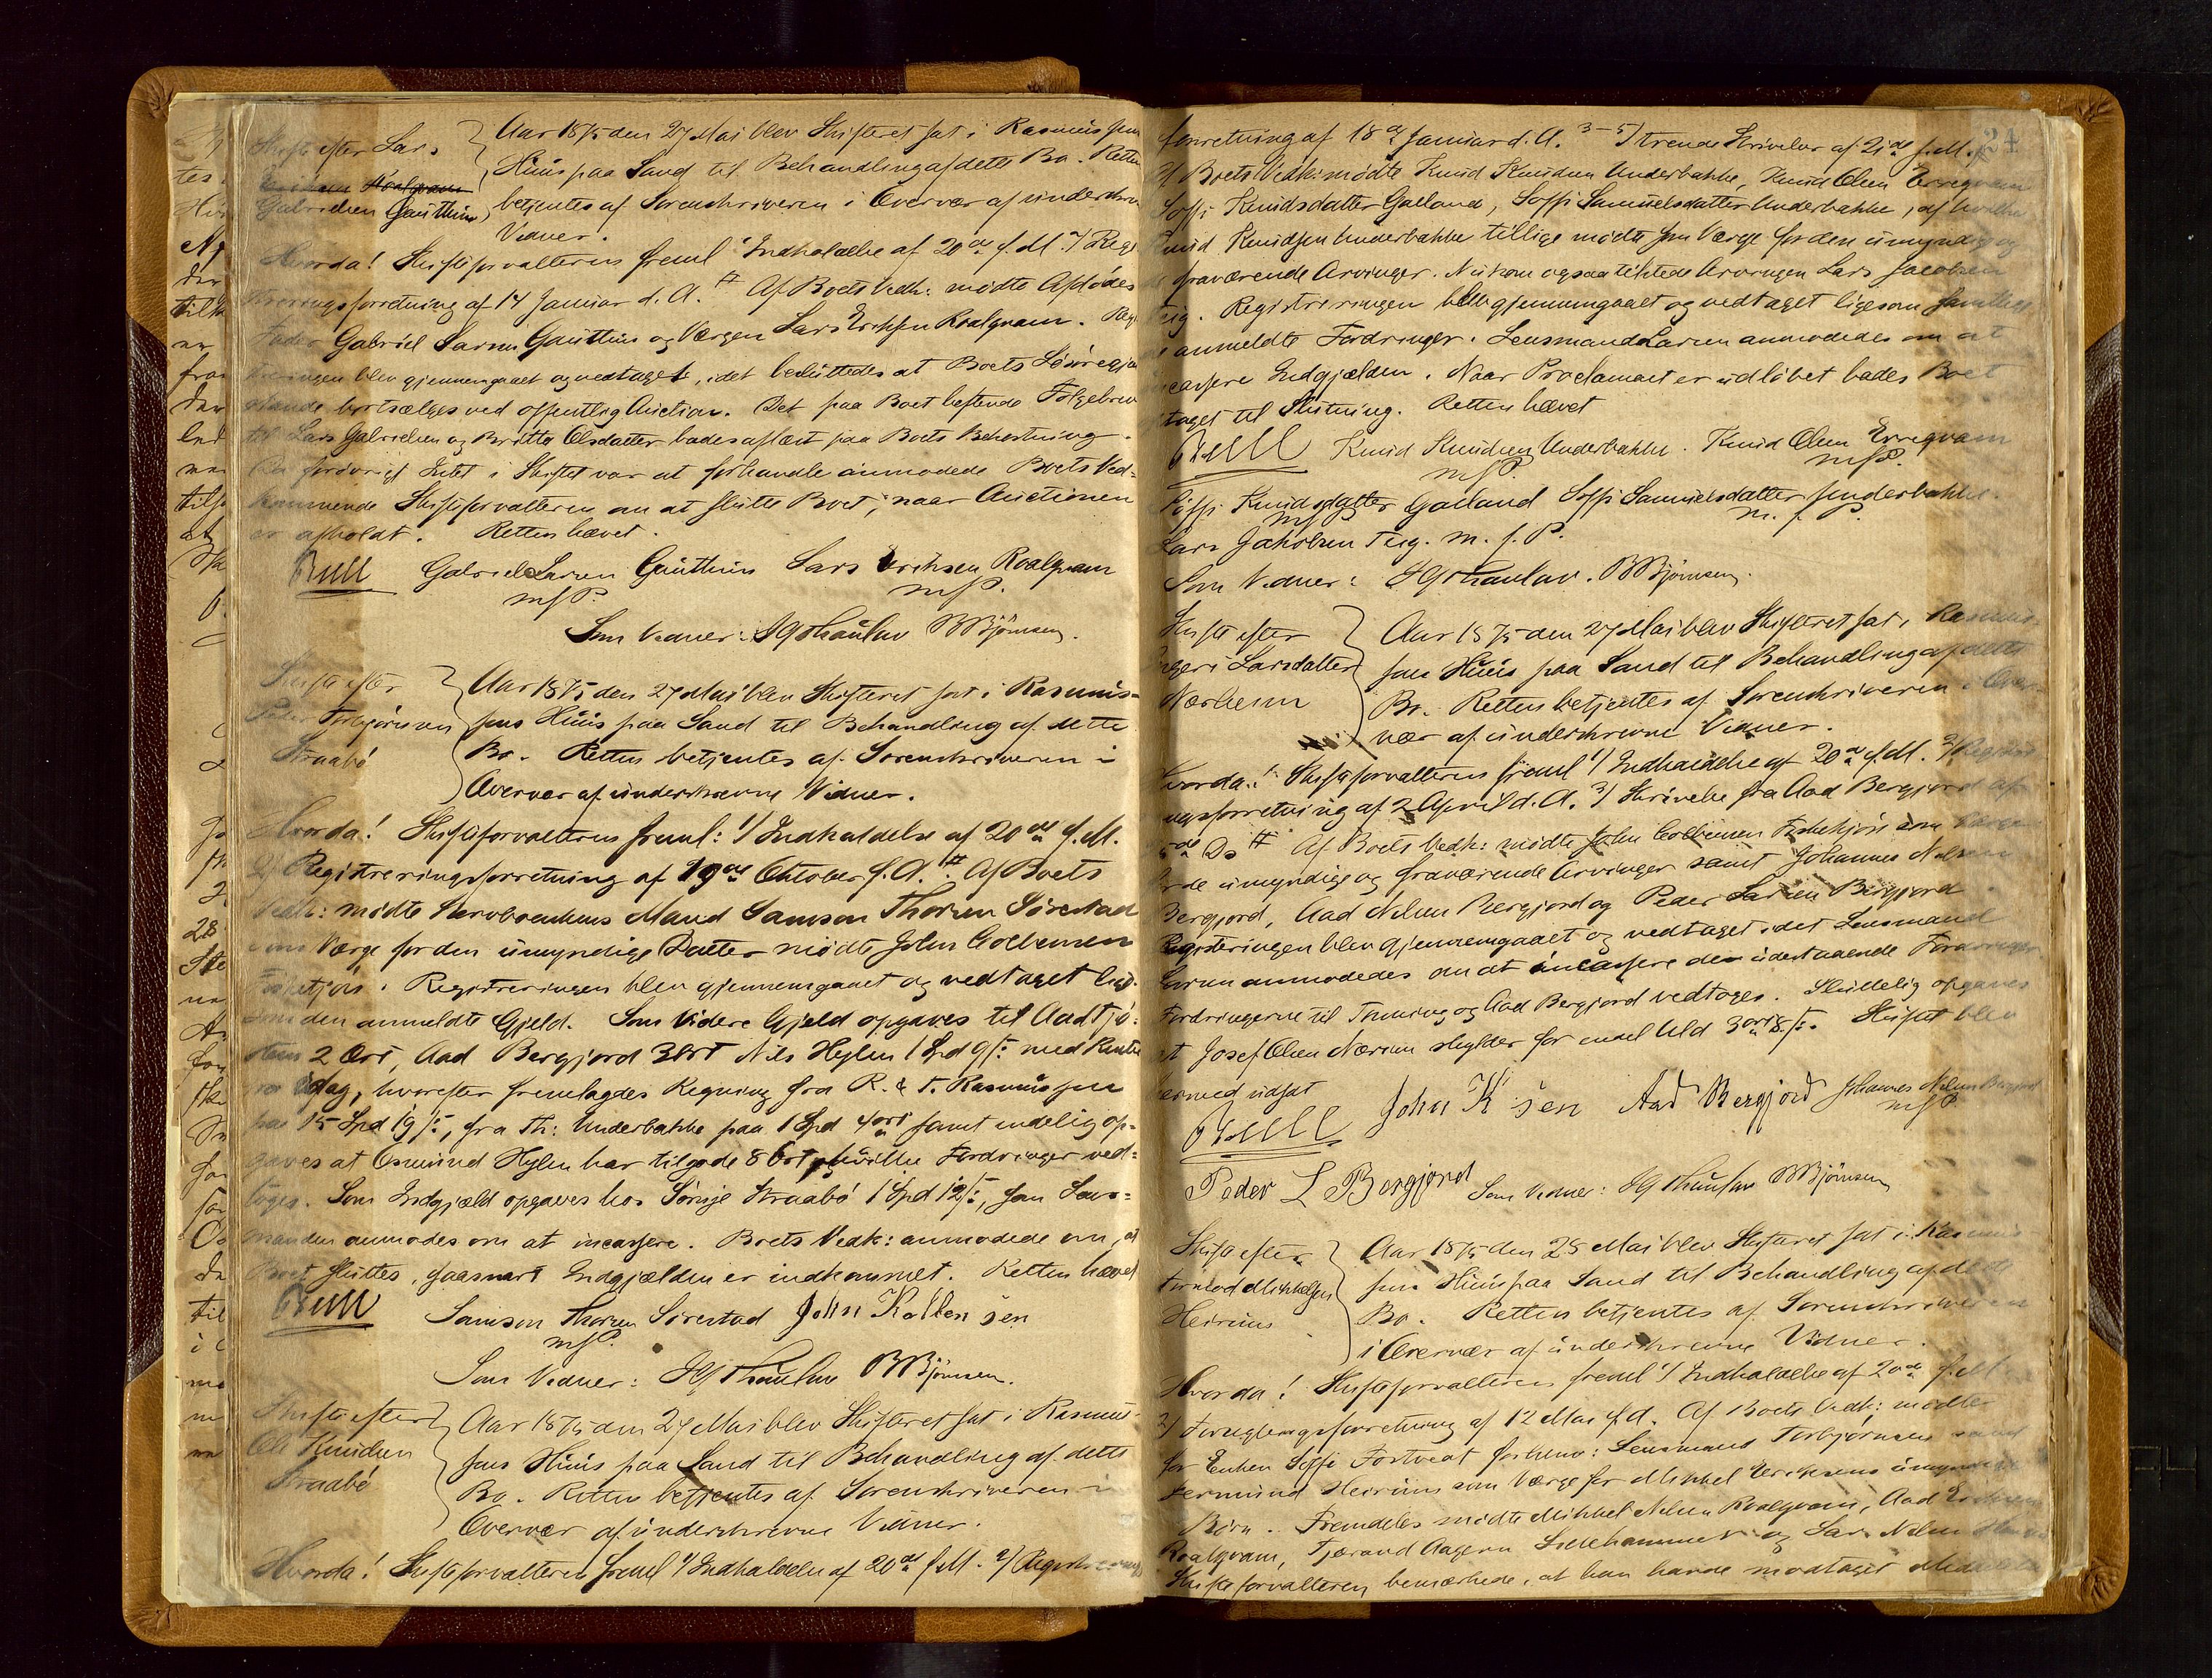 Skifte efter Lars
Gabrielsen Gauthun
Aar 1875 den 27 Mai blev Skifteret sat i Rasmussens
Huus paa Sand til Behandling af dette Bo. Retten
betjentes af Sorenskriveren i Overvær af underskrevne
Vidner.
Hvorda! Skifteforvalteren freml 1/ Indkaldelse af 20de f. M. 2/ Regi-
streringsforretning af 14 Januar d. A. # Af Boets Vedk: mødte Afdødes
Fader Gabriel Larsen Gauthun og Værgen Lars Erichsen Roalqvam. Regi-
streringen blev gjennemgaaet og vedtaget, idet besluttedes at Boets Løsøregjen-
stande bortsælges ved offentlig Auction. Det paa Boet heftende Følgebrev
til Lars Gabrielsen og Britta Olsdatter bades aflæst paa Boets Bekostning.
Da forøvrigt Intet i Skiftet var at forhandle anmodede Boets Ved-
kommende Skifteforvalteren om at slutte Boet, naar Auctionen
er afholdt. Retten hævet.
Bull Gabriel Larsen Gauthun Lars Erichsen Roalqvam
m f P. m f P.
Som Vidner: BBjørnsen.
Skifte efter
Peder Torbjørnsen
Straabø
Aar 1875 den 27 Mai blev Skifteret sat i Rasmus-
sens Huus paa Sand til Behandling af dette
Bo. Retten betjentes af Sorenskriveren i
Overvær af underskrevne Vidner.
Hvorda! Skifteforvalteren freml: 1/ Indkaldelse af 20de f. M.
2/ Registreringsforretning af 19de Oktober f. A. # Af Boets
Vedk: mødte Stervboenkens Mand Samson Thorsen Sørestad
som Værge for den umyndige Datter mødte John Colbensen
Fiskekjøn. Registreringen blev gjennemgaaet og vedtaget lige-
som den anmeldte Gjeld. Som videre Gjeld opgaves til Aad Tjø-
stein 2 Ort, Aad Bergjord 3 Ort Nils Hylen 1 Spd 9 ß med Renter
til idag, hvorefter fremlagdes Regning fra R. & T. Rasmussen
paa 15 Spd 19 ß, fra Th: Underbakke paa 1 Spd 4 ort samt endelig op-
gaves at Osmund Hylen har tilgode 8 Ort hvilke Fordringer ved-
toges. Som Indgjæld opgaves hos Sørsje Straabø 1 Spd 12 ß, som Lens-
manden anmodes om at incassere. Boets Vedk: anmodede om, at
Boet sluttes, saasnart Indgjælden er indkommet. Retten hævet
Bull Samson Thorsen Sørestad John Kolben sen
m f P.
Som Vidner: BBjørnsen.
Skifte efter
Ole Knudsen
Straabø
Aar 1875 den 27 Mai blev Skifteret sat i Rasmus-
sens Huus paa Sand til Behandling af dette
Bo. Retten betjentes af Sorenskriveren i
Overvær af underskrevne Vidner.
Hvorda! Skifteforvalteren freml 1/ Indkaldelse af 20de f. M. 2/ Registrerings
24
forretning af 18de Januar d. A. 3-5/ trende Skrivelser af 21de f. M.
Af Boets Vedk: mødte Knud Knudsen Underbakke, Knud Olsen Erreqvam
Soffi Knudsdatter Galland, Soffi Samuelsdatter Underbakke, af hvilke
Knud Knudsen Underbakke tillige mødte som Værge for den umyndige og
de fraværende Arvinger. Nu kom ogsaa Arvingen Lars Jacobsen
Teig. Registreringen blev gjennemgaaet og vedtaget ligesom samtlige
anmeldte Fordringer. Lensmand Larsen anmodedes om at
incassere Indgjælden. Naar Proclamaet er udløbet bades Boet
taget til Slutning. Retten hævet
Bull Knud Knudsen Underbakke. Knud Olsen Erreqvam
m f P. m f P.
Soffi Knudsdatter Galland Soffi Samuelsdatter Underbakke.
m f P. m. f. P.
Lars Jakobsen Teig. m. f. P.
Som Vidner: BBjørnsen.
Skifte efter
Ingeri Larsdatter
Nærheim
Aar 1875 den 27 Mai blev Skifteret sat i Rasmus-
sens Huus paa Sand til Behandling af dette
Bo. Retten betjentes af Sorenskriveren i Over-
vær af underskrevne Vidner.
Hvorda! Skifteforvalteren freml 1/ Indkaldelse af 20de f. M. 2/ Registre-
ringsforretning af 2 April d. A. 3/ Skrivelse fra Aad Bergjord af
Ds # Af Boets Vedk: mødte John Colbensen Fiskekjøn som Værge
for de umyndige og fraværende Arvinger samt Johannes Nilsen
Bergjord, Aad Nilsen Bergjord og Peder Larsen Bergjord.
Registeringen blev gjennemgaaet og vedtaget idet Lensmand
Larsen anmodedes om at incassere de udestaaende Fordringer
Fordringerne til Tonning og Aad Bergjord vedtoges. Sluttelig opgaves
at Josef Olsen Nærum skylder for endel Uld 3 ort 8 ß. Skiftet blev
dermed udsat
Bull John K sen Aad Bergjord Johannes Nilsen Bergjord
m f P.
Peder L Bergjord Som Vidner: BBjørnsen
Skifte efter
Tormod Mikkelsen
Heirum
Aar 1875 den 28 Mai blev Skifteret sat i Rasmus
sens Huus paa Sand til Behandling af dette
Bo. Retten betjentes af Sorenskriveren
i Overvær af underskrevne Vidner.
Hvorda! Skifteforvalteren freml 1/ Indkaldelse af 20de f. M
2/ Forseglingsforretning af 12 Mai . Af Boets Vedk: mødte
for Enken Soffi Tostveat forhenv: Lensmand Torbjørnsen samt
Heirum som Værge for Mikkel Eriksens umyndige
Børn. Fremdeles mødte Mikkel Nilsen Roalqvam, Aad
Roalqvam, Tjerand Aagesen Lillehammer og Lars Nilsen
Skifteforvalteren bemærkede, at han havde modtaget